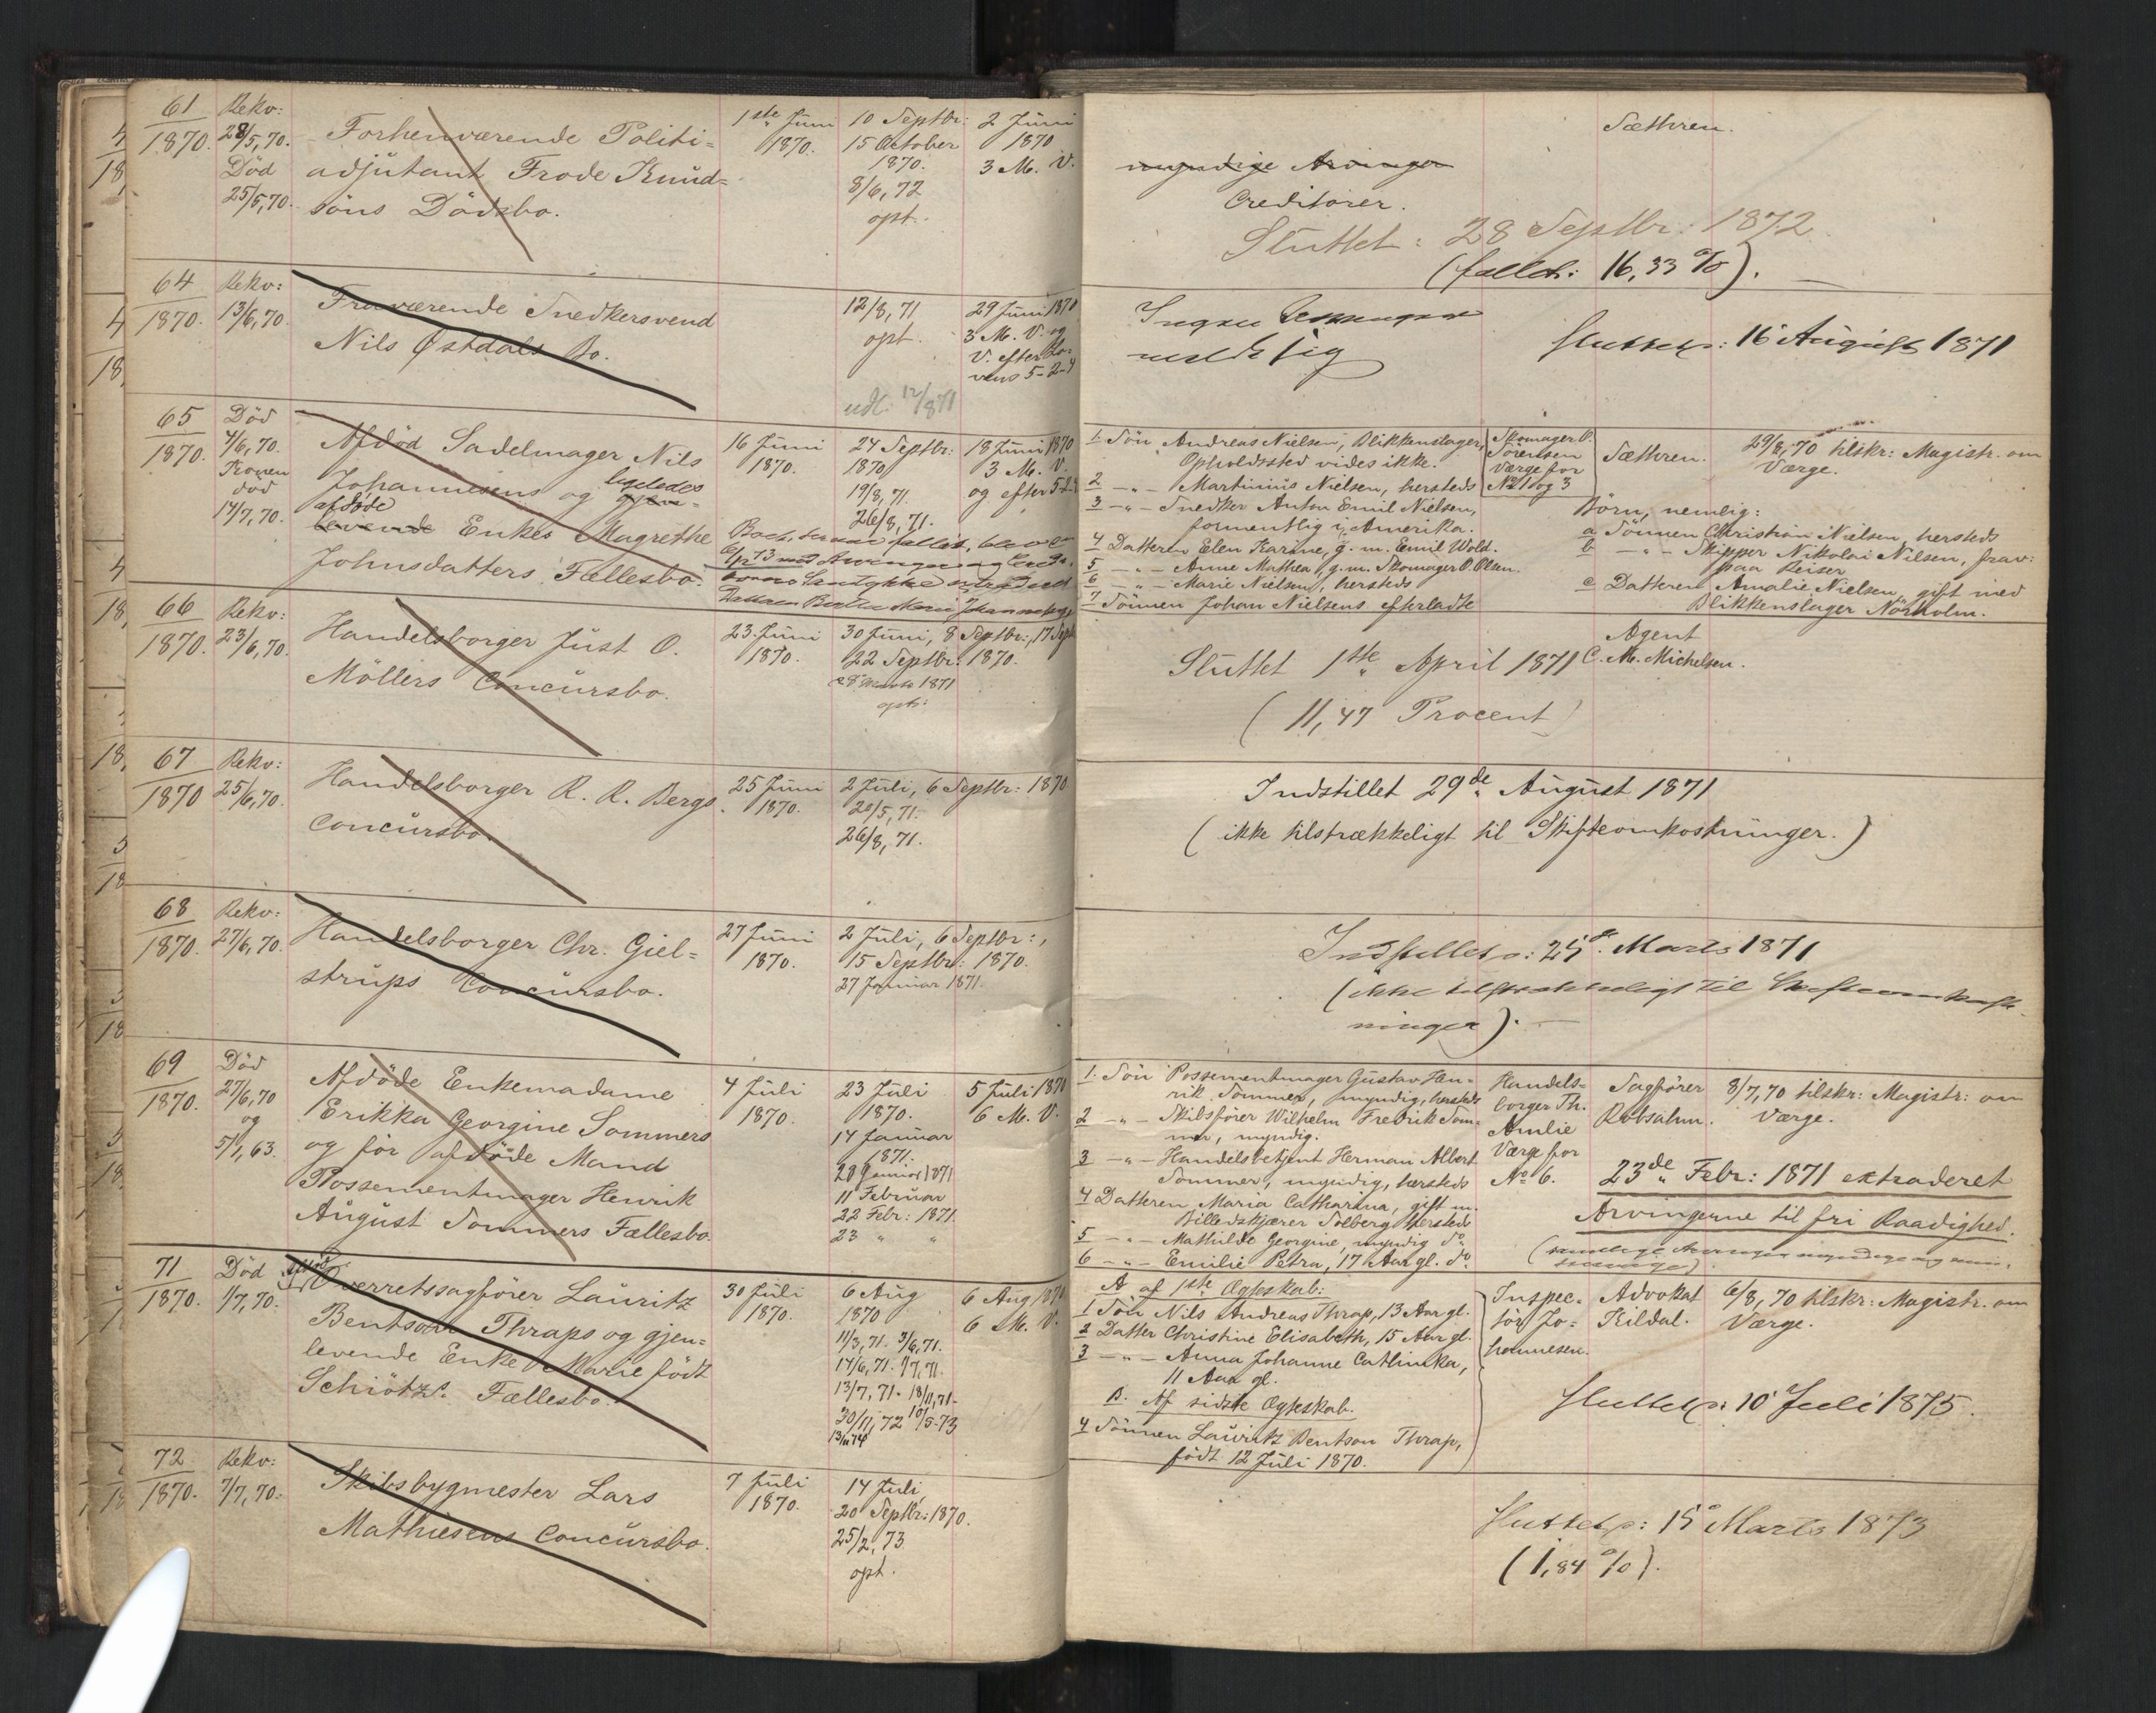 61
1870.
Rekv:
28/5, 70.
Död
25/5, 70.
Forhenværende Politi=
adjutant Frode Knud=
söns Dödsbo.
1ste Juni
1870.
10 Septbr:
15 October
1870.
8/6, 72
opt.
2 Juni
1870
3 M. V.
Sæthren.
myndige Arvinger
Creditorer.
Sluttet: 28 Septbr: 1872
(fallit: 16,33 %).
64
1870.
Rekv:
13/6, 70.
Fraværende Snedkersvend
Nils Østdals Bo.
12/8, 71
opt.
udl. 12/8 71
29 Juni 1870
3 M. V. og
V. efter Lo-
vens 5-2-4
Ingen
meldt sig
Sluttet: 16 August 1871
65
1870.
Död
4/6, 70.
Konen
död
14/7, 70.
Afdöd Sadelmager Nils
Johannesens og ligeledes gjen=
afdöde
levende Enkes Magrethe
Johnsdatters Fællesbo.
16 Juni
1870.
24 Septbr:
1870
19/8, 71.
26/8, 71.
18 Juni 1870
3 M. V.
og efter 5-2-4
1. Sön Andreas Nielsen, Blikkenslager,
Opholdssted vides ikke.
2 -"- Martinius Nielsen, hersteds
3 -"- Snedker Anton Emil Nielsen,
formentlig i Amerika.
4 Datteren Elen Karine, g. m. Emil Wold.
5 -"- Anne Mathea, g. m. Skomager O. Olsen.
6 -"- Marie Nielsen, hersteds
7 Sönnen Johan Nielsens efterladte
Skomager O.
Sörensen
Værge for
No 1 og 3
Sæthren.
29/8, 70 tilskr: Magistr. om
Værge.
Börn, nemlig:
a Sönnen Christian Nielsen, hersteds
b -"- Skipper Nikolai Nilsen, frav:
paa Reiser
c Datteren Amalie Nielsen, gift med
Blikkenslager Nörholm.
66
1870.
Rekv:
23/6, 70.
Handelsborger Just O.
Möllers Concursbo.
23 Juni
1870.
30 Juni, 8 Septbr:, 17 Sept
22 Septbr: 1870.
Marts 1871
opt:
Sluttet 1ste April 1871
(11,47 Procent)
Agent
C. M. Michelsen.
67
1870
Rekv:
25/6, 70.
Handelsborger R. R. Bergs
Concursbo.
25 Juni
1870.
2 Juli, 6 Septbr: 1870
20/5, 71.
26/8, 71.
Indstillet 29de August 1871
(ikke tilstrækkeligt til Skifteomkostninger.)
68
1870.
Rekv:
27/6, 70.
Handelsborger Chr. Giel=
strups Concursbo.
27 Juni
1870.
2 Juli, 6 Septbr:,
15 Septbr: 1870.
27 Januar 1871.
Indstillet: 25de Marts 1871
(ikke tilstrækkeligt til Skifteomkost-
ninger).
69
1870.
Död
27/6, 70
og
5/1, 63.
Afdöde Enkemadame
Erikka Georgine Sommers
og för afdöde Mand
Possementmager Henrik
August Sommers Fællesbo.
4 Juli
1870.
23 Juli
1870.
14 Januar
1871.
28 Januar 1871
11 Februar
22 Febr: 1871.
23 " "
5 Juli 1870
6 M. V.
1. Sön Possementmager Gustav Hen-
rik Sommer, myndig, hersteds
2 -"- Skibsförer Wilhelm Fredrik Som-
mer, myndig.
3 -"- Handelsbetjent Herman Albert
Sommer, myndig, hersteds
4 Datteren Maria Catharina, gift m.
Billedskjærer Solberg hersteds
5 -"- Mathilde Georgine, myndig do.
6 -"- Emilie Petra, 17 Aar gl. do.
Handels-
borger Th.
Amlie
Værge for
No 6.
Sagförer
Robsahm.
8/7, 70 tilskr: Magistr: om
Værge.
23de Febr: 1871 extraderet
Arvingerne til fri Raadighed.
71
1870.
Död
1/7, 70.
afdöd
Overretssagförer Lauritz
Bentson Thraps og gjen=
levende Enke Marie födt
Schiötzs Fællesbo.
30 Juli
1870.
6 Aug
1870
11/3, 71. 3/6, 71.
17/6, 71. 1/7, 71.
13/7, 71. 18/11, 71.
30/11, 72 10/5-73
13/11 74
6 Aug 1870
6 M. V.
A af 1ste Ægteskab:
1 Sön Nils Andreas Thrap, 13 Aar gl.
2 Datter Christine Elisabeth, 15 Aar gl.
3 -"- Anna Johanne Cathinka,
11 Aar gl.
B. Af sidste Ægteskab.
4 Sönnen Lauritz Bentson Thrap,
födt 12 Juli 1870.
Inspec-
tör Jo-
hannesen.
Advokat
Kildal.
6/8, 70 tilskr: Magistr. om
Værge.
Sluttet: 10 Juli 1875.
72
1870.
Rekv:
7/7, 70.
Skibsbygmester Lars
Mathiesens Concursbo.
7 Juli
1870.
14 Juli,
20 Septbr: 1870.
25/2, 73
opt.
Sluttet: 15 Marts 1873
(1,84 %).